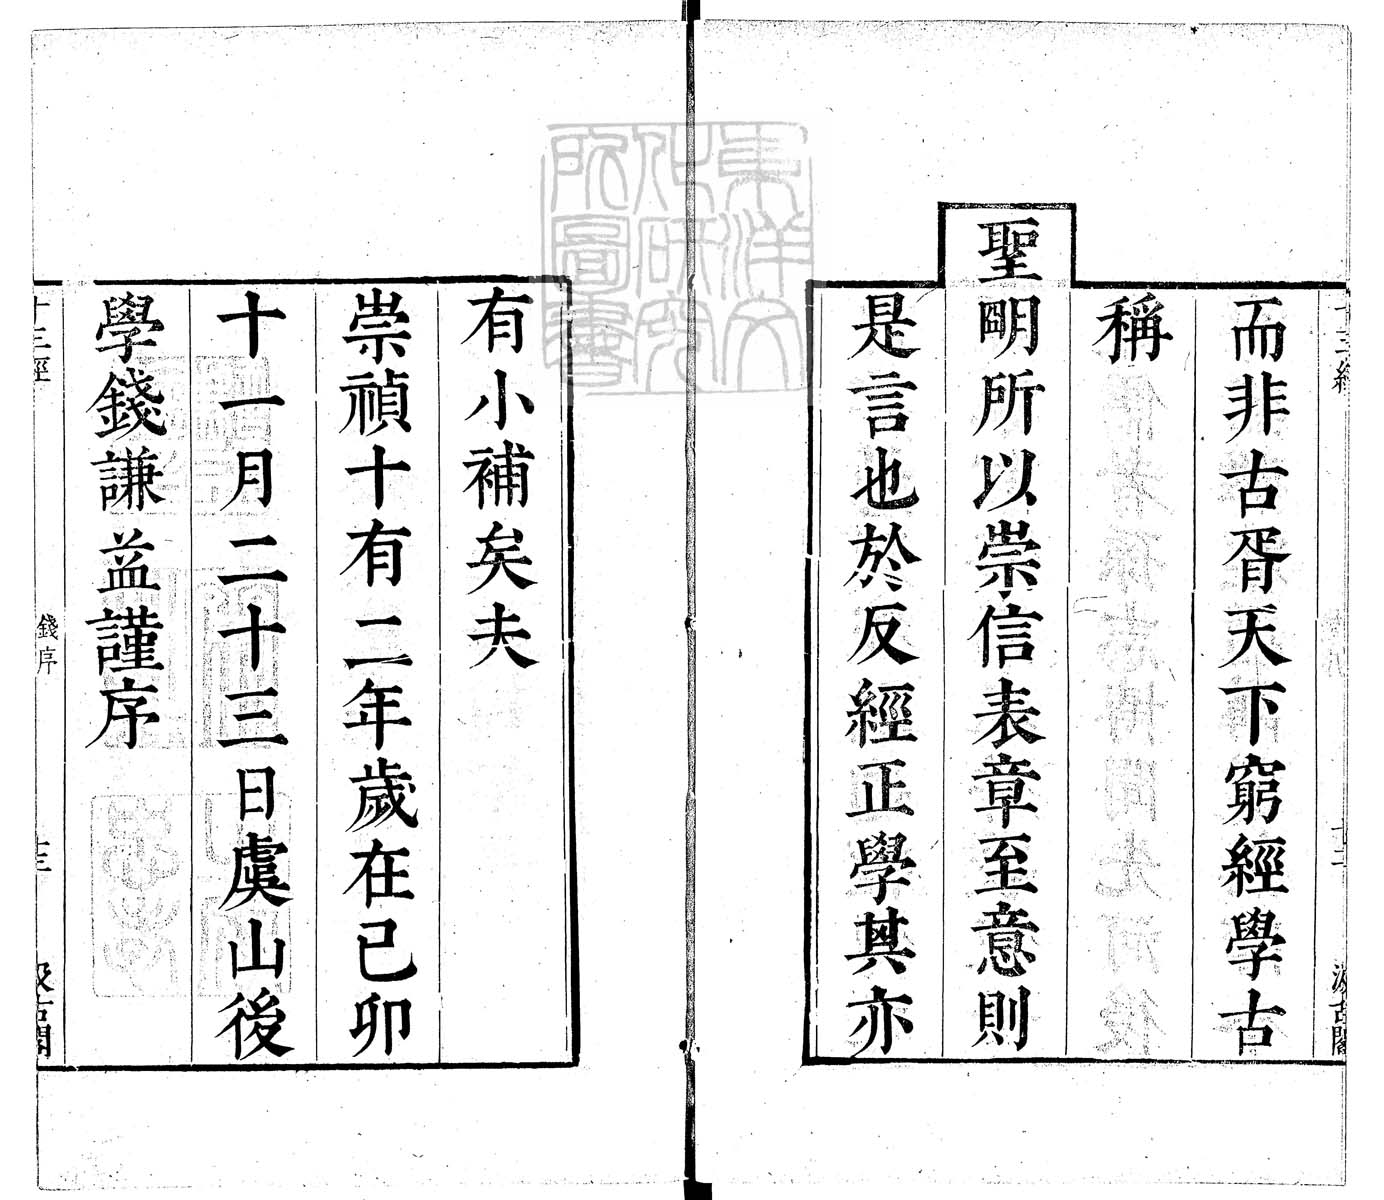 而非古胥天下窮經學古
稱
聖明所以崇信表章至意則
是言也於反經正學其亦
有小補矣夫
崇禎十有二年歲在己卯
十一月二十三日虞山後
學錢謙益謹序
十三經
錢序
十三
汲古閣
東洋文
化研究
所圖書